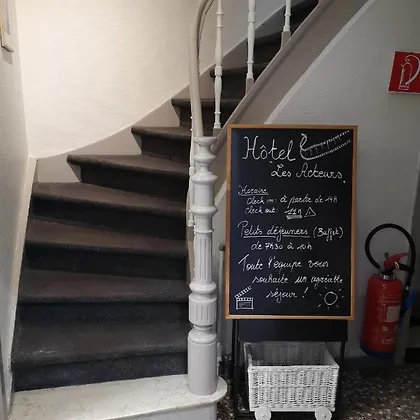 Hôtel
Les Acteurs.
Horaire
Check in: à partir de 14h
Check out: 11h
Petits déjeuners (Buffet)
de 7h30 à 10h
Toute l'équipe vous
souhaite un agréable
séjour!